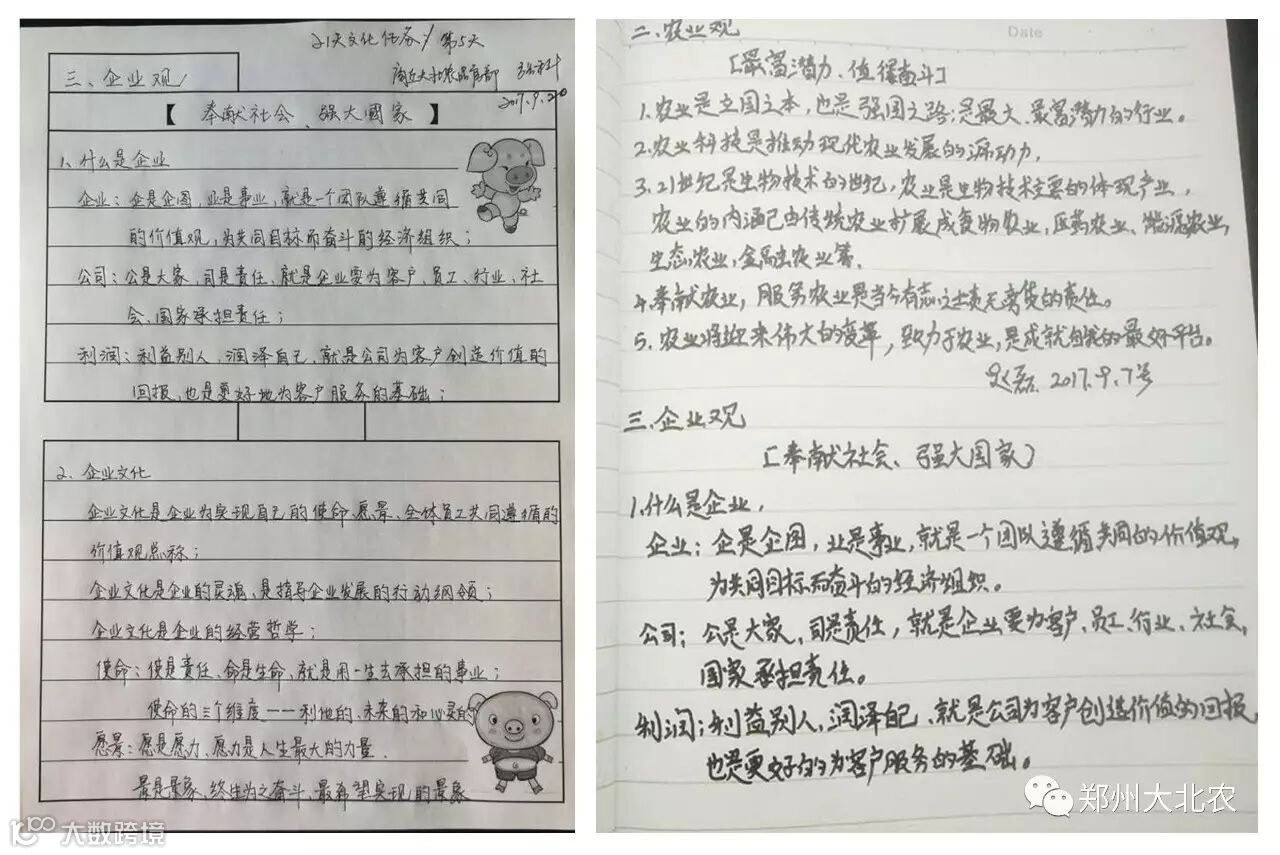 21天文化任务 第5天
三、企业观
商丘大北农品管部
2017.9.20
【 奉献社会、强大國家 】
1、什么是企业
企业：企是企图，业是事业，就是一个团队遵循共同
的价值观，为共同目标而奋斗的经济组织；
公司：公是大家，司是责任，就是企业要为客户、员工、行业、社
会、国家承担责任；
利润：利益别人，润泽自己，就是公司为客户创造价值的
回报，也是更好地为客户服务的基础；
2、企业文化
企业文化是企业为实现自己的使命、愿景、全体员工共同遵循的
价值观总称；
企业文化是企业的灵魂、是指导企业发展的行动纲领；
企业文化是企业的经营哲学；
使命：使是责任、命是生命、就是用一生去承担的事业；
使命的三个维度——利他的、未来的和心灵的
愿景：愿是愿力、愿力是人生最大的力量．
景是景象、终生为之奋斗、最希望实现的景象
大数跨境
Date
二、农业观
［最富潜力、值得奋斗］
1.农业是立国之本，也是强国之路；是最大、最富潜力的行业。
2.农业科技是推动现代农业发展的源动力，
3.21世纪是生物技术的世纪，农业是生物技术主要的体现产业，
农业的内涵已由传统农业扩展成食物农业，医药农业、能源农业，
生态农业，金融农业等，
4.奉献农业，服务农业是当今有志之士责无旁贷的责任。
5.农业将迎来伟大的变革，致力于农业，是成就自我的最好平台。
2017.9.7号
三、企业观
［奉献社会、强大国家］
1.什么是企业，
企业：企是企图，业是事业，就是一个团队遵循共同的价值观，
为共同目标而奋斗的经济组织。
公司：公是大家，司是责任，就是企业要为客户、员工、行业、社会、
国家承担责任。
利润：利益别人，润泽自己、就是公司为客户创造价值的回报，
也是更好的为客户服务的基础。
郑州大北农